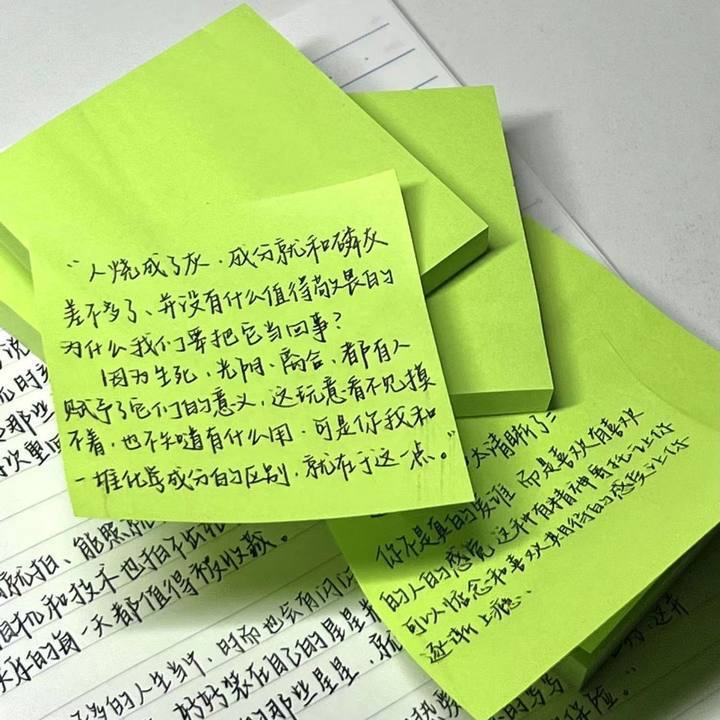 “人烧成了灰，成分就和磷灰
差不多了，并没有什么值得敬畏的
为什么我们要把它当回事？
因为生死、光阴、离合、都有人
赋予了它们的意义，这玩意看不见摸
不着，也不知道有什么用，可是你我和
一堆化学成分的区别，就在于这一点。”
太清晰了=
你不是真的爱谁 而是喜欢有喜欢
的人的感觉 这种有精神寄托让你
可以怀念和喜欢并期待的感觉让你
逐渐上瘾。
就拍、能照就
相机和技术也拍不出
的每一天都值得被收藏。
的人生当中，时而也会有闪
好好装在自己的星星
的那些星星，就
保险。”